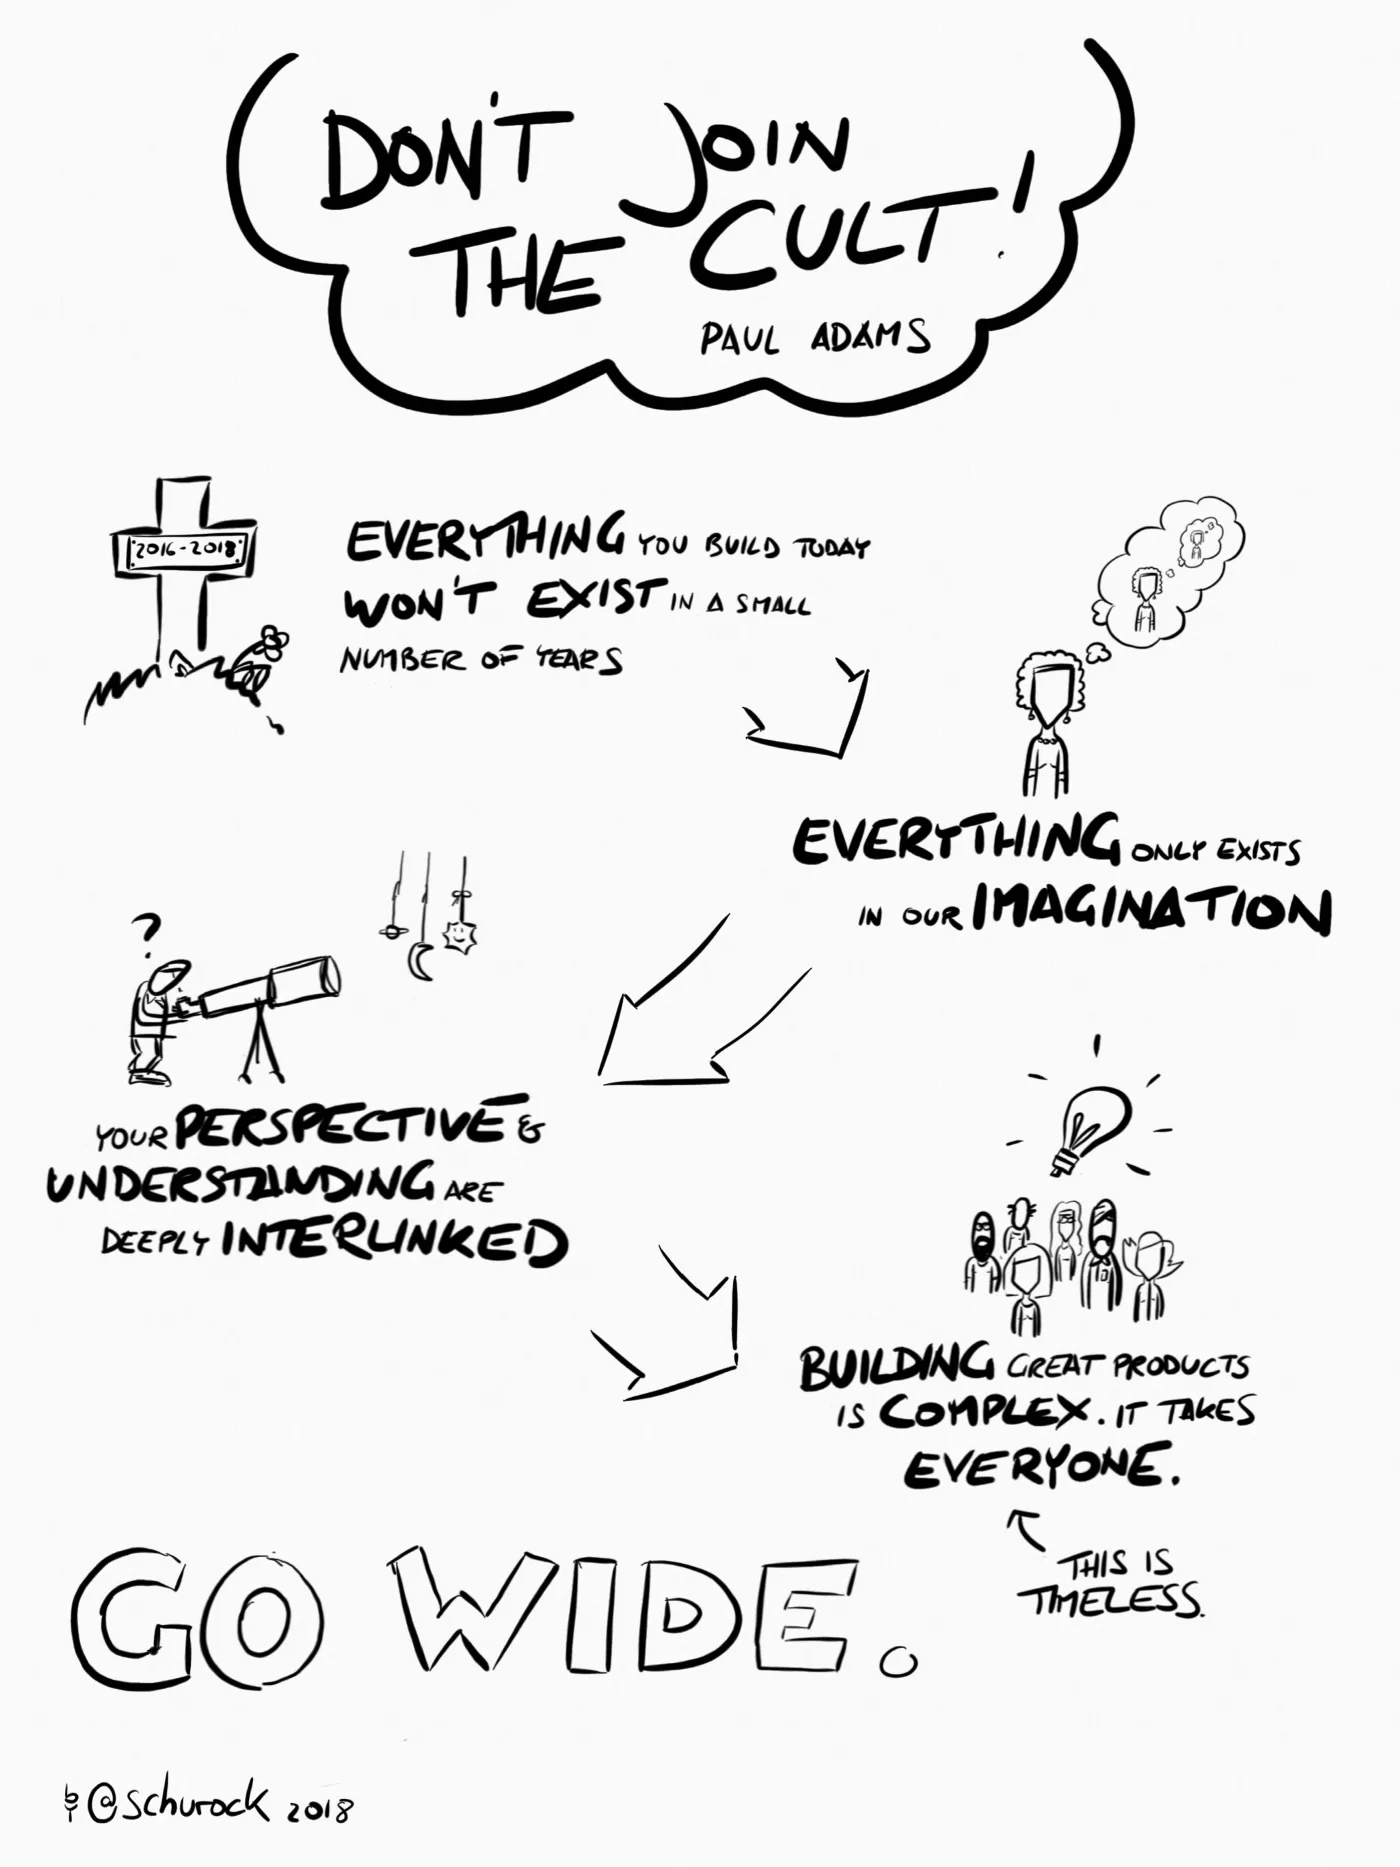 DON'T JOIN
THE CULT!
PAUL ADAMS
2016-2018
EVERYTHING YOU BUILD TODAY
WON'T EXIST IN A SMALL
NUMBER OF YEARS
EVERYTHING ONLY EXISTS
IN OUR IMAGINATION
?
YOUR PERSPECTIVE &
UNDERSTANDING ARE
DEEPLY INTERLINKED
BUILDING GREAT PRODUCTS
IS COMPLEX. IT TAKES
EVERYONE.
THIS IS
TIMELESS.
GO WIDE.
by @schurock 2018